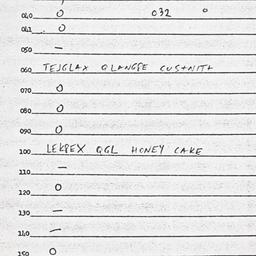 040 O 032 o
041 O
050 –
060 TEJGLAX QLANGSE CUSTNITT
070 O
080 O
090 O
100 LEKPEX QGL HONEY CAKE
110 –
120 O
130 –
140 –
150 O